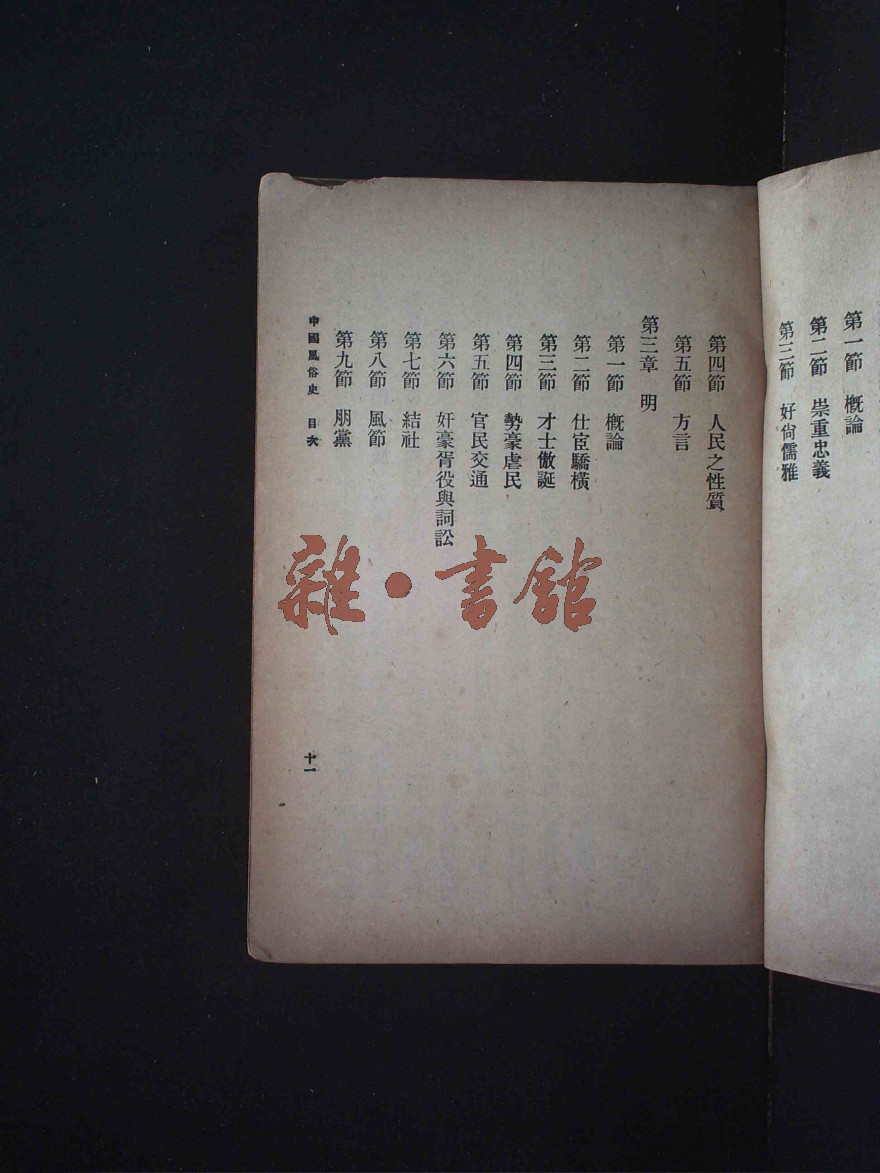 第一節　概論
第二節　崇重忠義
第三節　好尙儒雅
第四節　人民之性質
第五節　方言
第三章　明
第一節　概論
第二節　仕宦驕橫
第三節　才士傲誕
第四節　勢豪虐民
第五節　官民交通
第六節　奸豪胥役與詞訟
第七節　結社
第八節　風節
第九節　朋黨
中國風俗史　目次
十一
雜·書館